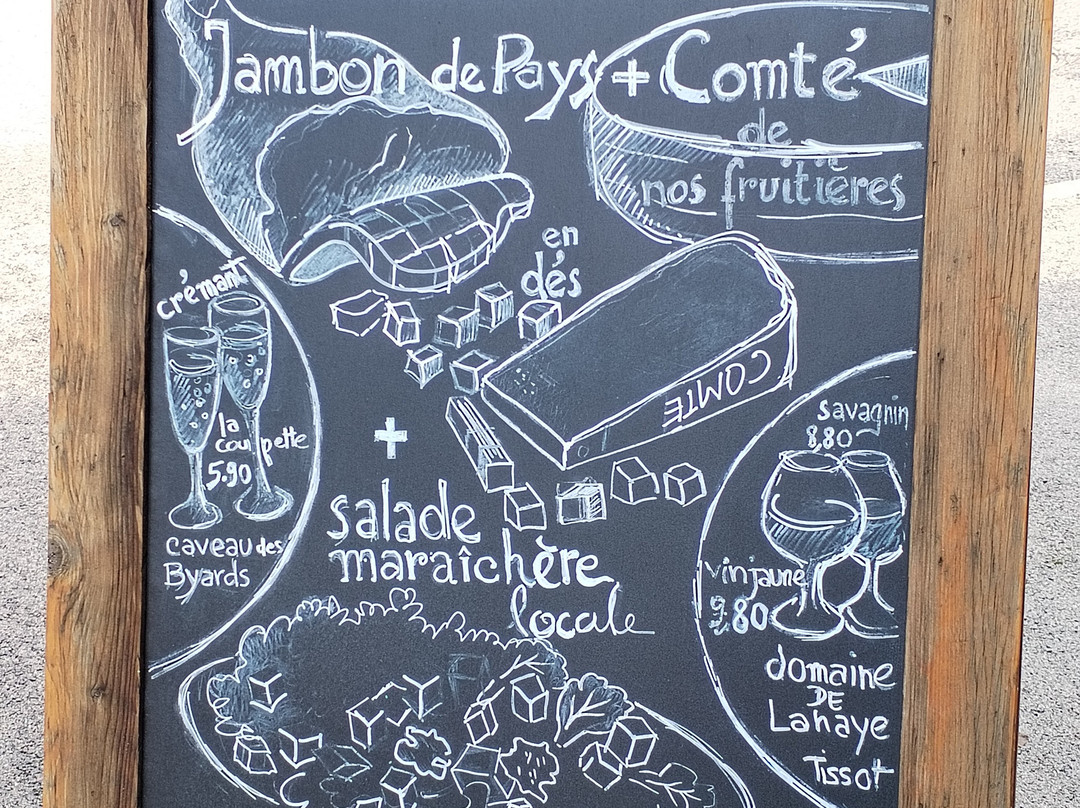 Jambon de Pays + Comté
de
nos fruitières
en
dés
COMTE
crémant
la
coupette
5.90
caveau des
Byards
+
salade
maraîchère
locale
savagnin
8,80
vin jaune
9.80
domaine
DE
Lahaye
Tissot